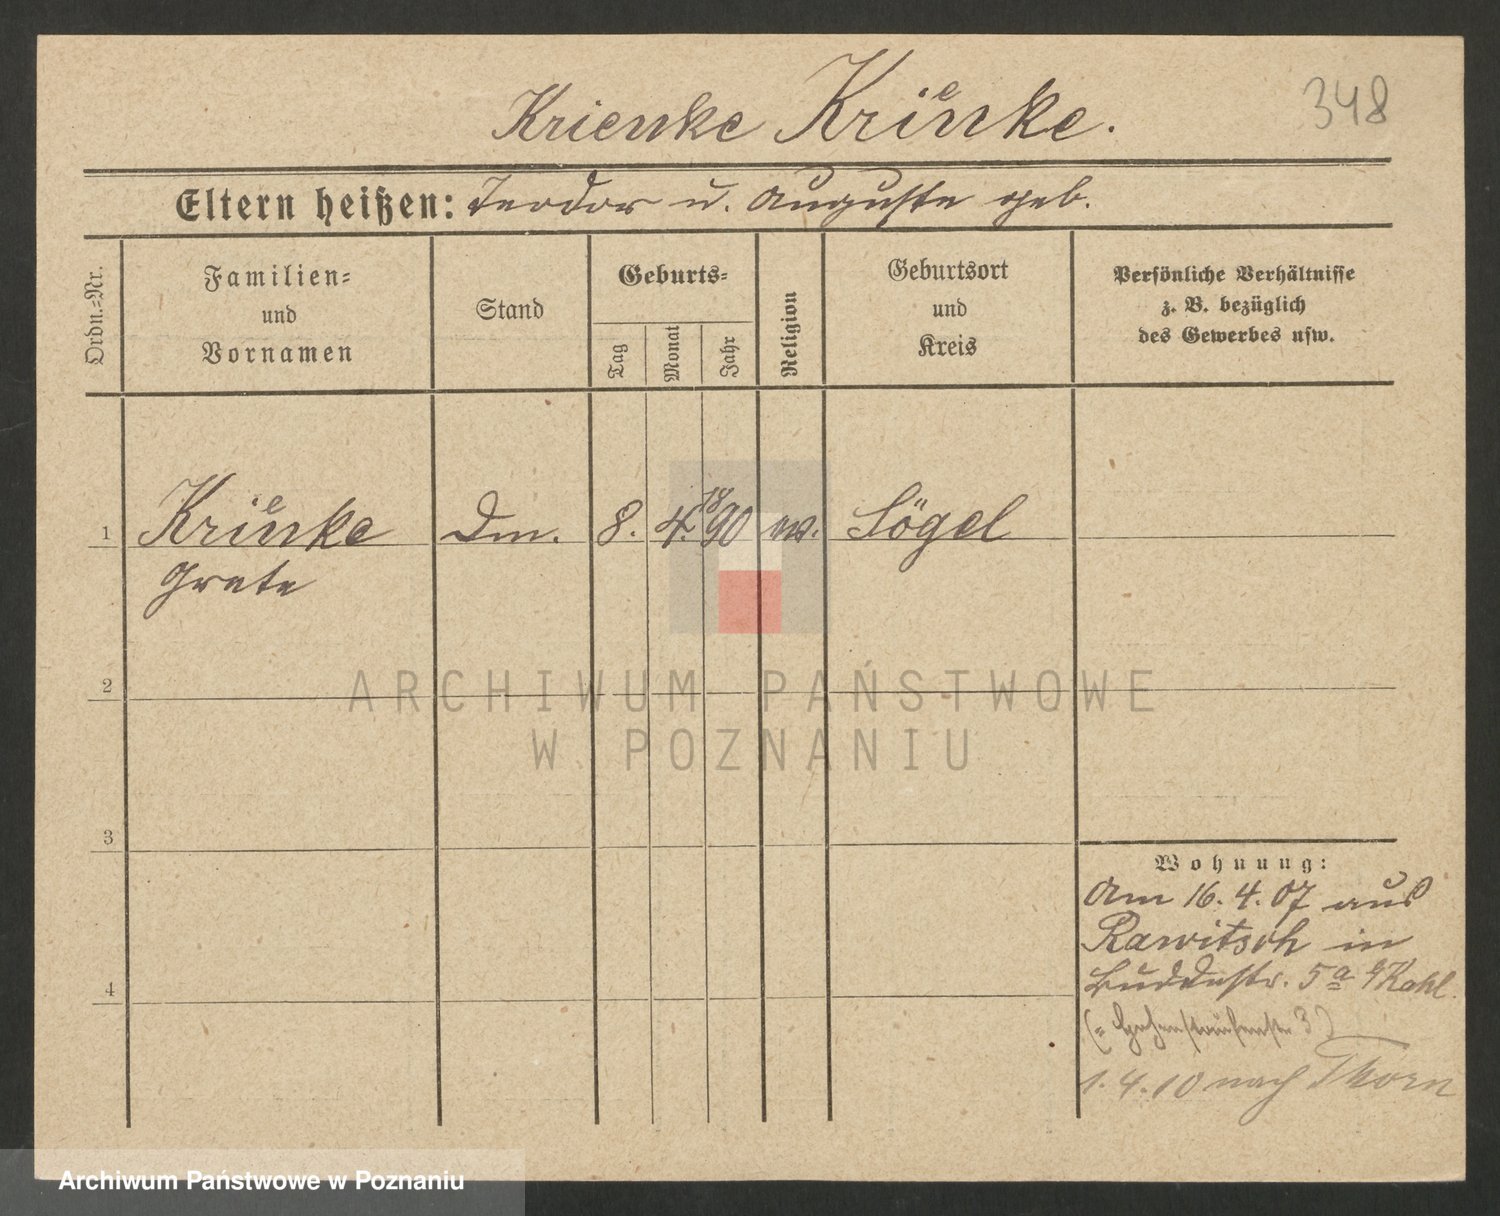 Krienke Krienke.
348
Eltern heißen: Teodor u. Auguste geb.
Ordn.-Nr.
Familien-
und
Vornamen
Stand
Geburts-
Tag
Monat
Jahr
Religion
Geburtsort
und
Kreis
Persönliche Verhältnisse
z. B. bezüglich
des Gewerbes usw.
1 Krienke Dm. 8. 4. 1890 ev. Sögel
Grete
2
3
4
Wohnung:
Am 16.4.07 aus
Rawitsch in
Buddestr. 5a
(= Hohenstaufenstr. 3)
1.4.10 nach Thorn
ARCHIWUM PAŃSTWOWE
W POZNANIU
Archiwum Państwowe w Poznaniu